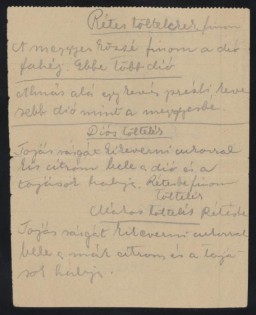 Rétes töltelékek finom
A meggyes közé finom a dió
fahéj Ebbe több dió
Almás alá egy kevés prézli keve
sebb dió mint a meggyesbe
Diós töltelék
Tojás sárgát kikeverni cukorral
kis citrom bele a dió és a
tojások habja. Rétesbe finom
töltelék
Mákos töltelék Rétesbe
Tojás sárgát kikeverni cukorral
bele a mák citrom és a tojá
sok habja.